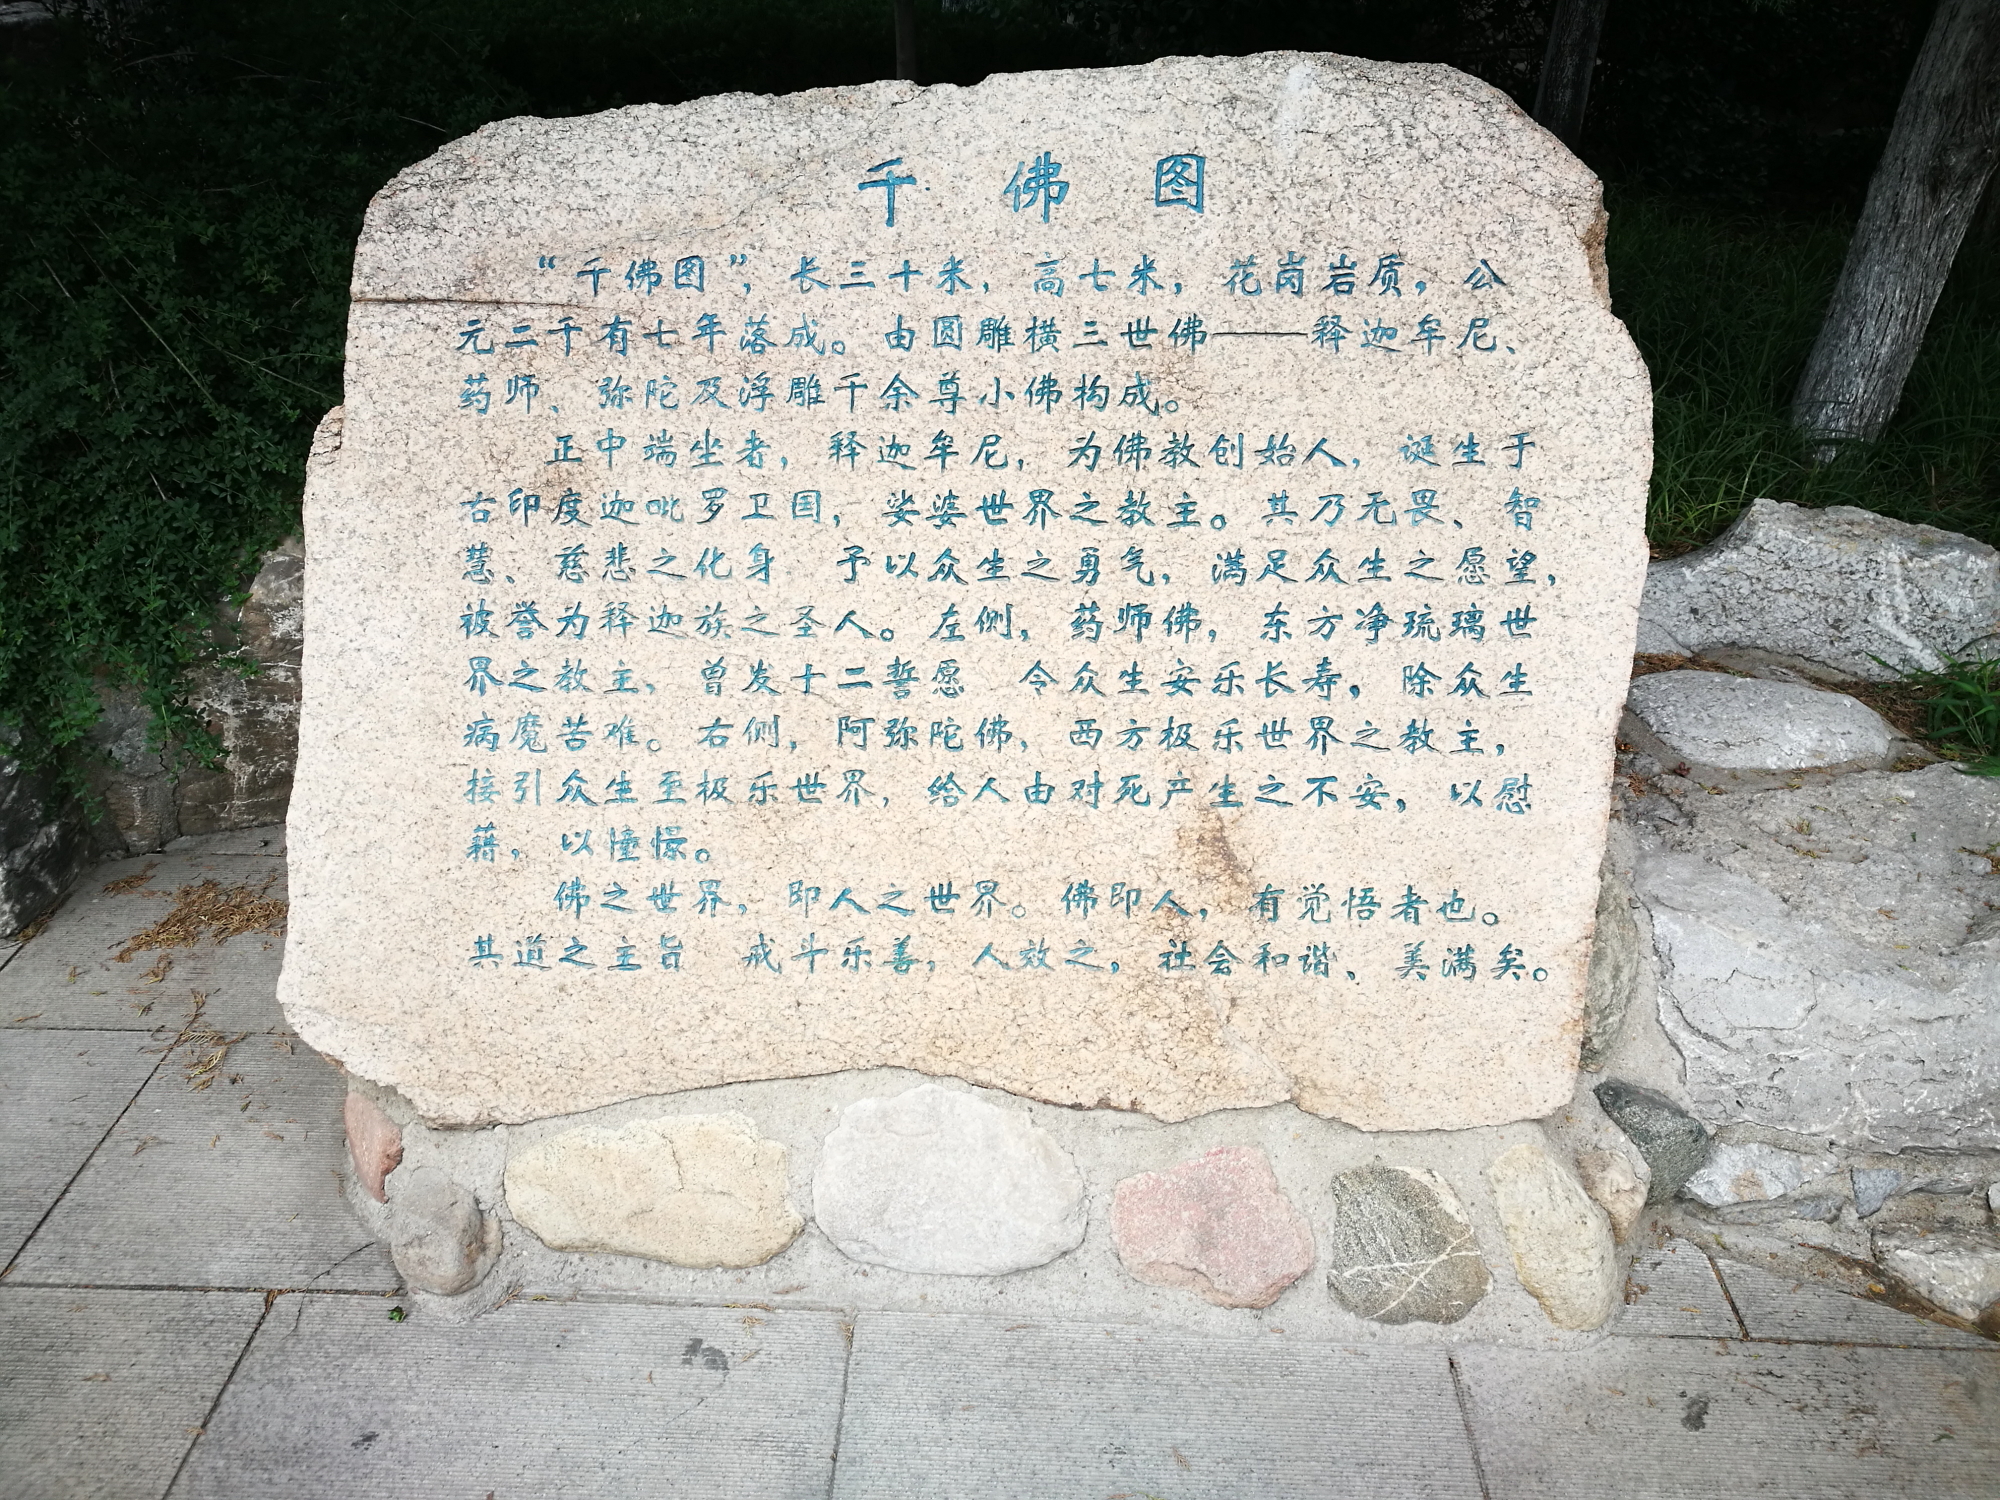 千佛图
“千佛图”，长三十米，高七米，花岗岩质。公
元二千有七年落成。由圆雕横三世佛——释迦牟尼、
药师、弥陀及浮雕千余尊小佛构成。
正中端坐者，释迦牟尼，为佛教创始人，诞生于
古印度迦毗罗卫国，娑婆世界之教主。其乃无畏、智
慧、慈悲之化身 予以众生之勇气，满足众生之愿望，
被誉为释迦族之圣人。左侧，药师佛，东方净琉璃世
界之教主，曾发十二誓愿 令众生安乐长寿，除众生
病魔苦难。右侧，阿弥陀佛，西方极乐世界之教主，
接引众生至极乐世界，给人由对死产生之不安，以慰
藉，以憧憬。
佛之世界，即人之世界。佛即人，有觉悟者也。
其道之主旨 戒斗乐善，人效之，社会和谐、美满矣。